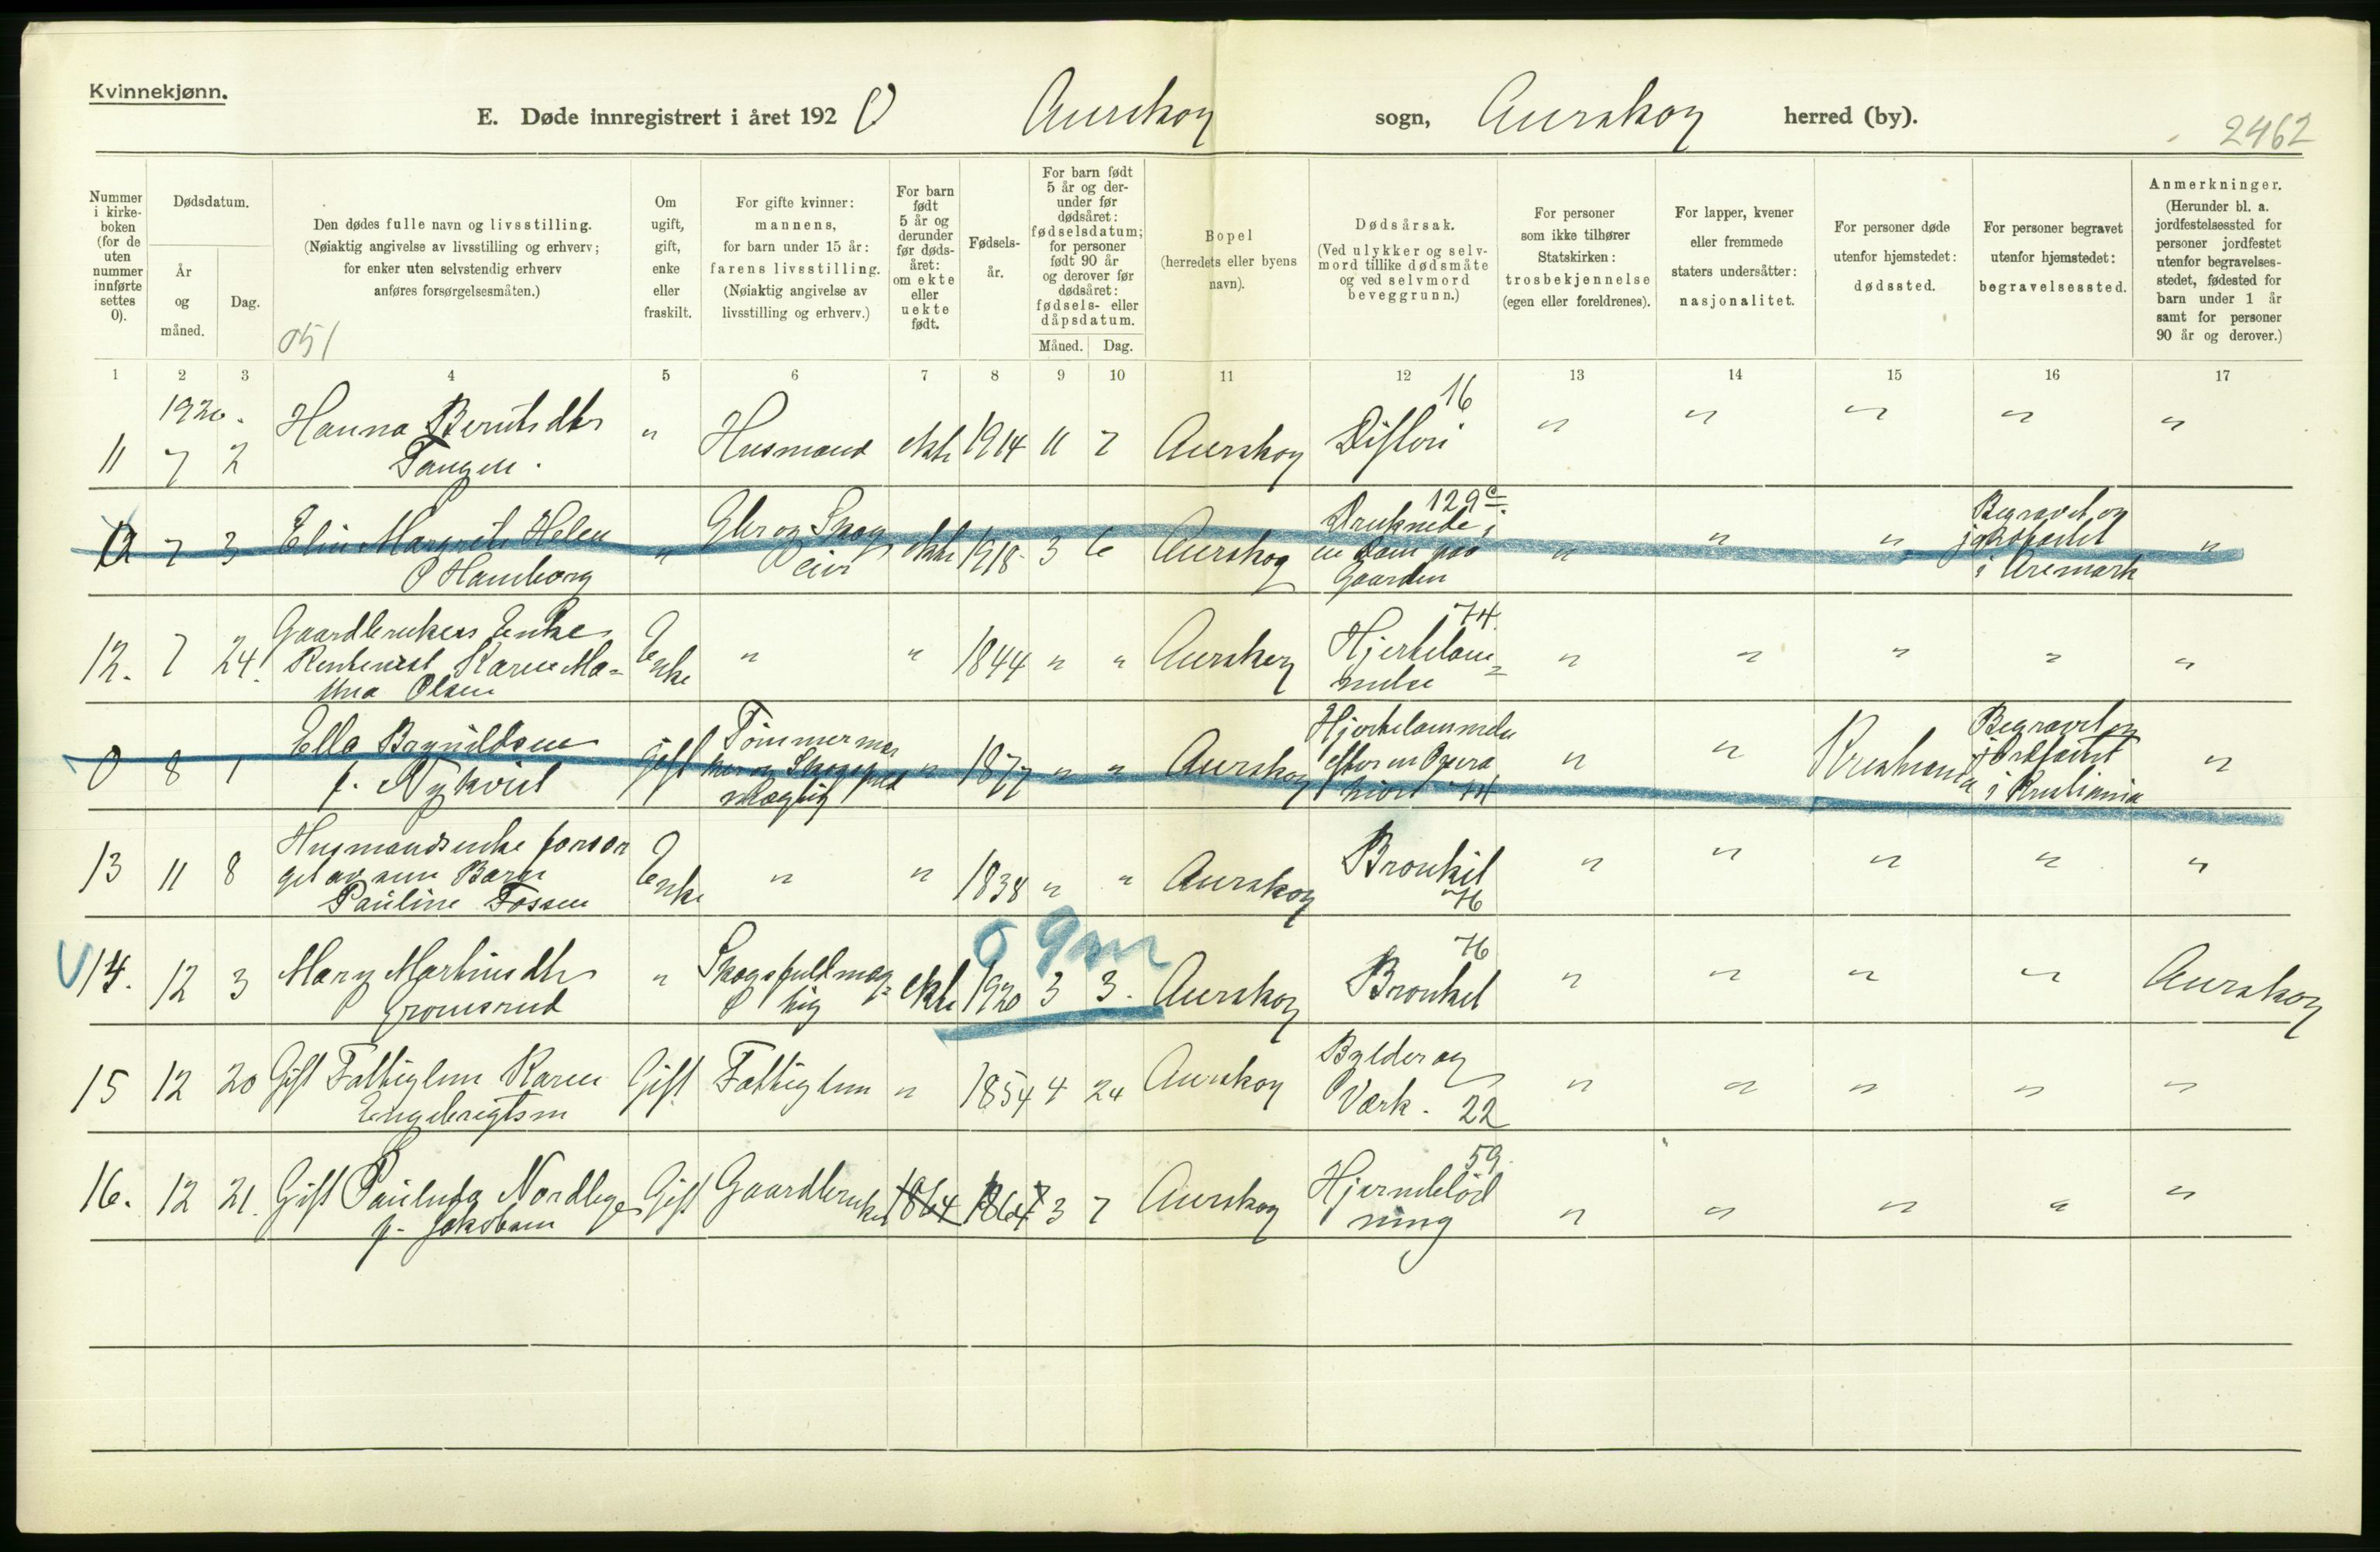 Kvinnekjønn.
E. Døde innregistrert i året 1920 Aurskog sogn, Aurskog herred (by).
2462
Nummer i kirke-boken (for de uten nummer innførte settes 0).
Dødsdatum.
År og måned.
Dag.
Den dødes fulle navn og livsstilling.
(Nøiaktig angivelse av livsstilling og erhverv;
for enker uten selvstendig erhverv
anføres forsørgelsesmåten.)
051
Om ugift, gift, enke eller fraskilt.
For gifte kvinner:
mannens,
for barn under 15 år:
farens livsstilling.
(Nøiaktig angivelse av
livsstilling og erhverv.)
For barn født 5 år og derunder før døds-året: om ekte eller uekte født.
Fødsels-år.
For barn født 5 år og der-under før dødsåret: fødselsdatum; for personer født 90 år og derover før dødsåret: fødsels- eller dåpsdatum.
Måned. Dag.
Bopel
(herredets eller byens
navn).
Dødsårsak.
(Ved ulykker og selv-
mord tillike dødsmåte
og ved selvmord
beveggrunn.)
For personer
som ikke tilhører
Statskirken:
trosbekjennelse
(egen eller foreldrenes).
For lapper, kvener
eller fremmede
staters undersåtter:
nasjonalitet.
For personer døde
utenfor hjemstedet:
dødssted.
For personer begravet
utenfor hjemstedet:
begravelsessted.
Anmerkninger.
(Herunder bl. a.
jordfestelsessted for
personer jordfestet
utenfor begravelses-
stedet, fødested for
barn under 1 år
samt for personer
90 år og derover.)
1 2 3 4 5 6 7 8 9 10 11 12 13 14 15 16 17
1920.
11 7 2 Hanna Berntsdtr Tangen. " Husmand ekte 1914 11 7 Aurskog Difteri 16 " " " " "
0 7 3 Elin Margrete Helen Hamborg " Eier og Skog eier ekte 1918 3 6 Aurskog Druknede i en Dam paa Gaarden 129c " " " Begravet og jordfæstet i Aremark "
12. 7 24. Gaardbrukers Enke Karen Ma= Olsen Enke " " 1844 " " Aurskog Hjertelam= melse 74. " " " " "
0 8 1 Ella Brynildsen f. Nykvist Gift Tømmermer ker og Skogsfuld mægtig " 1877 " " Aurskog Hjertelammelse efter en Opera tion 74 " " Kristiania Begravet og jordfæstet i Kristiania "
13 11 8 Husmandsenke forsør get av sine Barn Pauline Fossen Enke " " 1838 " " Aurskog Bronkit 76 " " " " "
0 9 m
V 14. 12 3 Mary Martinsdtr Gromsrud " Skogsfuldmæg= tig ekte 1920 3 3. Aurskog Bronkit 76 " " " " Aurskog
15 12 20 Gift Fattiglem Karen Engebrigtsen Gift Fattiglem " 1854 4 24 Aurskog Bylder og Værk. 22 " " " " "
16. 12 21. Gift Nordby f. Jakobsen Gift Gaardbruker 1864 1864 3 7 Aurskog Hjerneblød ning 59. " " " " "